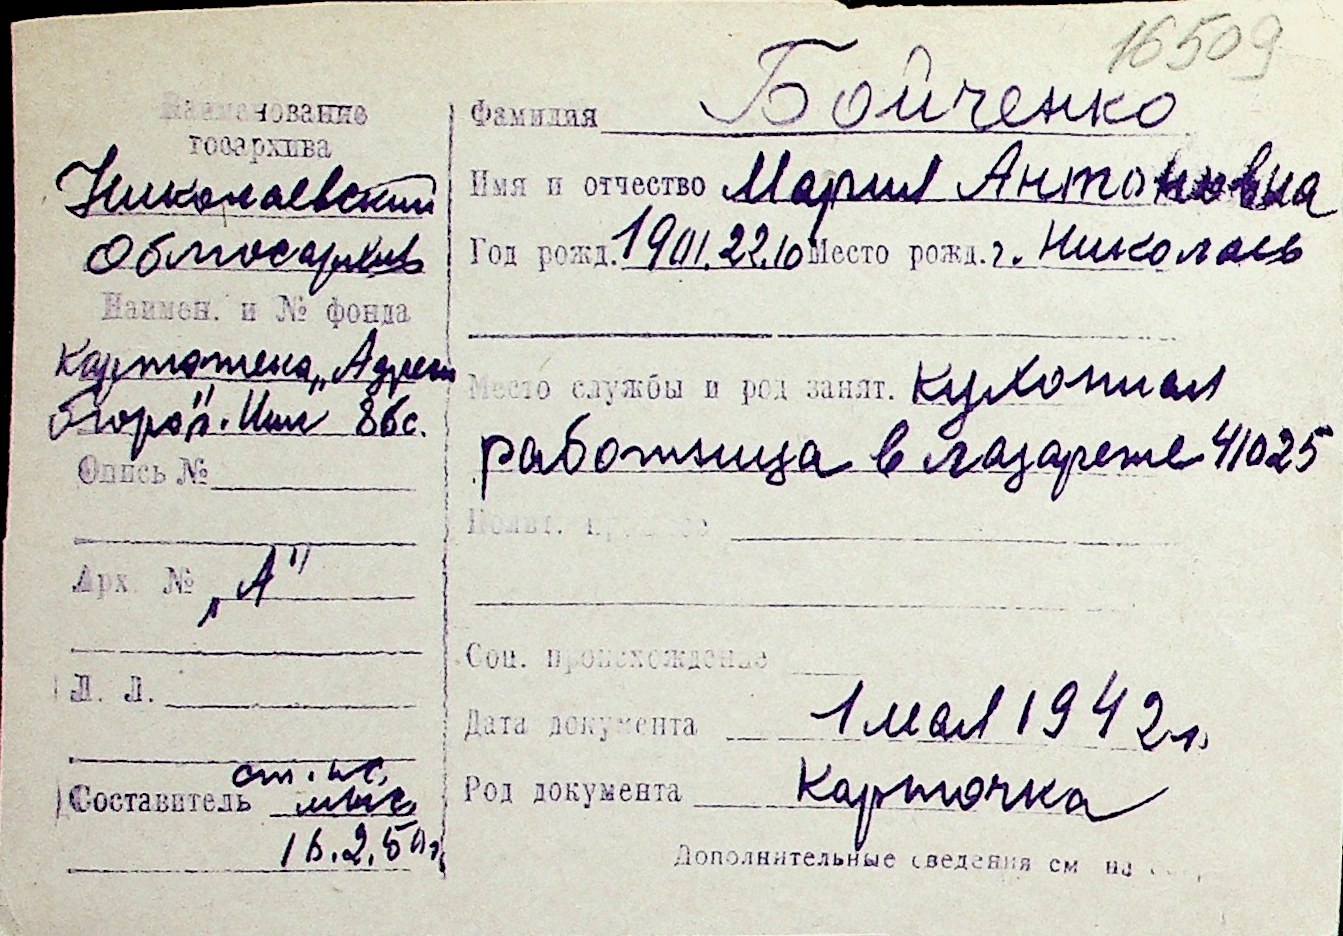 16509
Наименование
госархива
Николаевский
Облгосархив
Наимен. и № фонда
Картотека „Адресн
бюро"
Опись №
Арх. № „А"
Л. Л.
Составитель
Фамилия Бойченко
Имя и отчество Мария Антоновна
Год рожд. 1901.22.10 Место рожд. г. Николаев
Место службы и род занят. кухонная
работница в лазарете 41025
Соц. происхождение
Дата документа 1 мая 1942 г.
Род документа Карточка
Дополнительные сведения см на